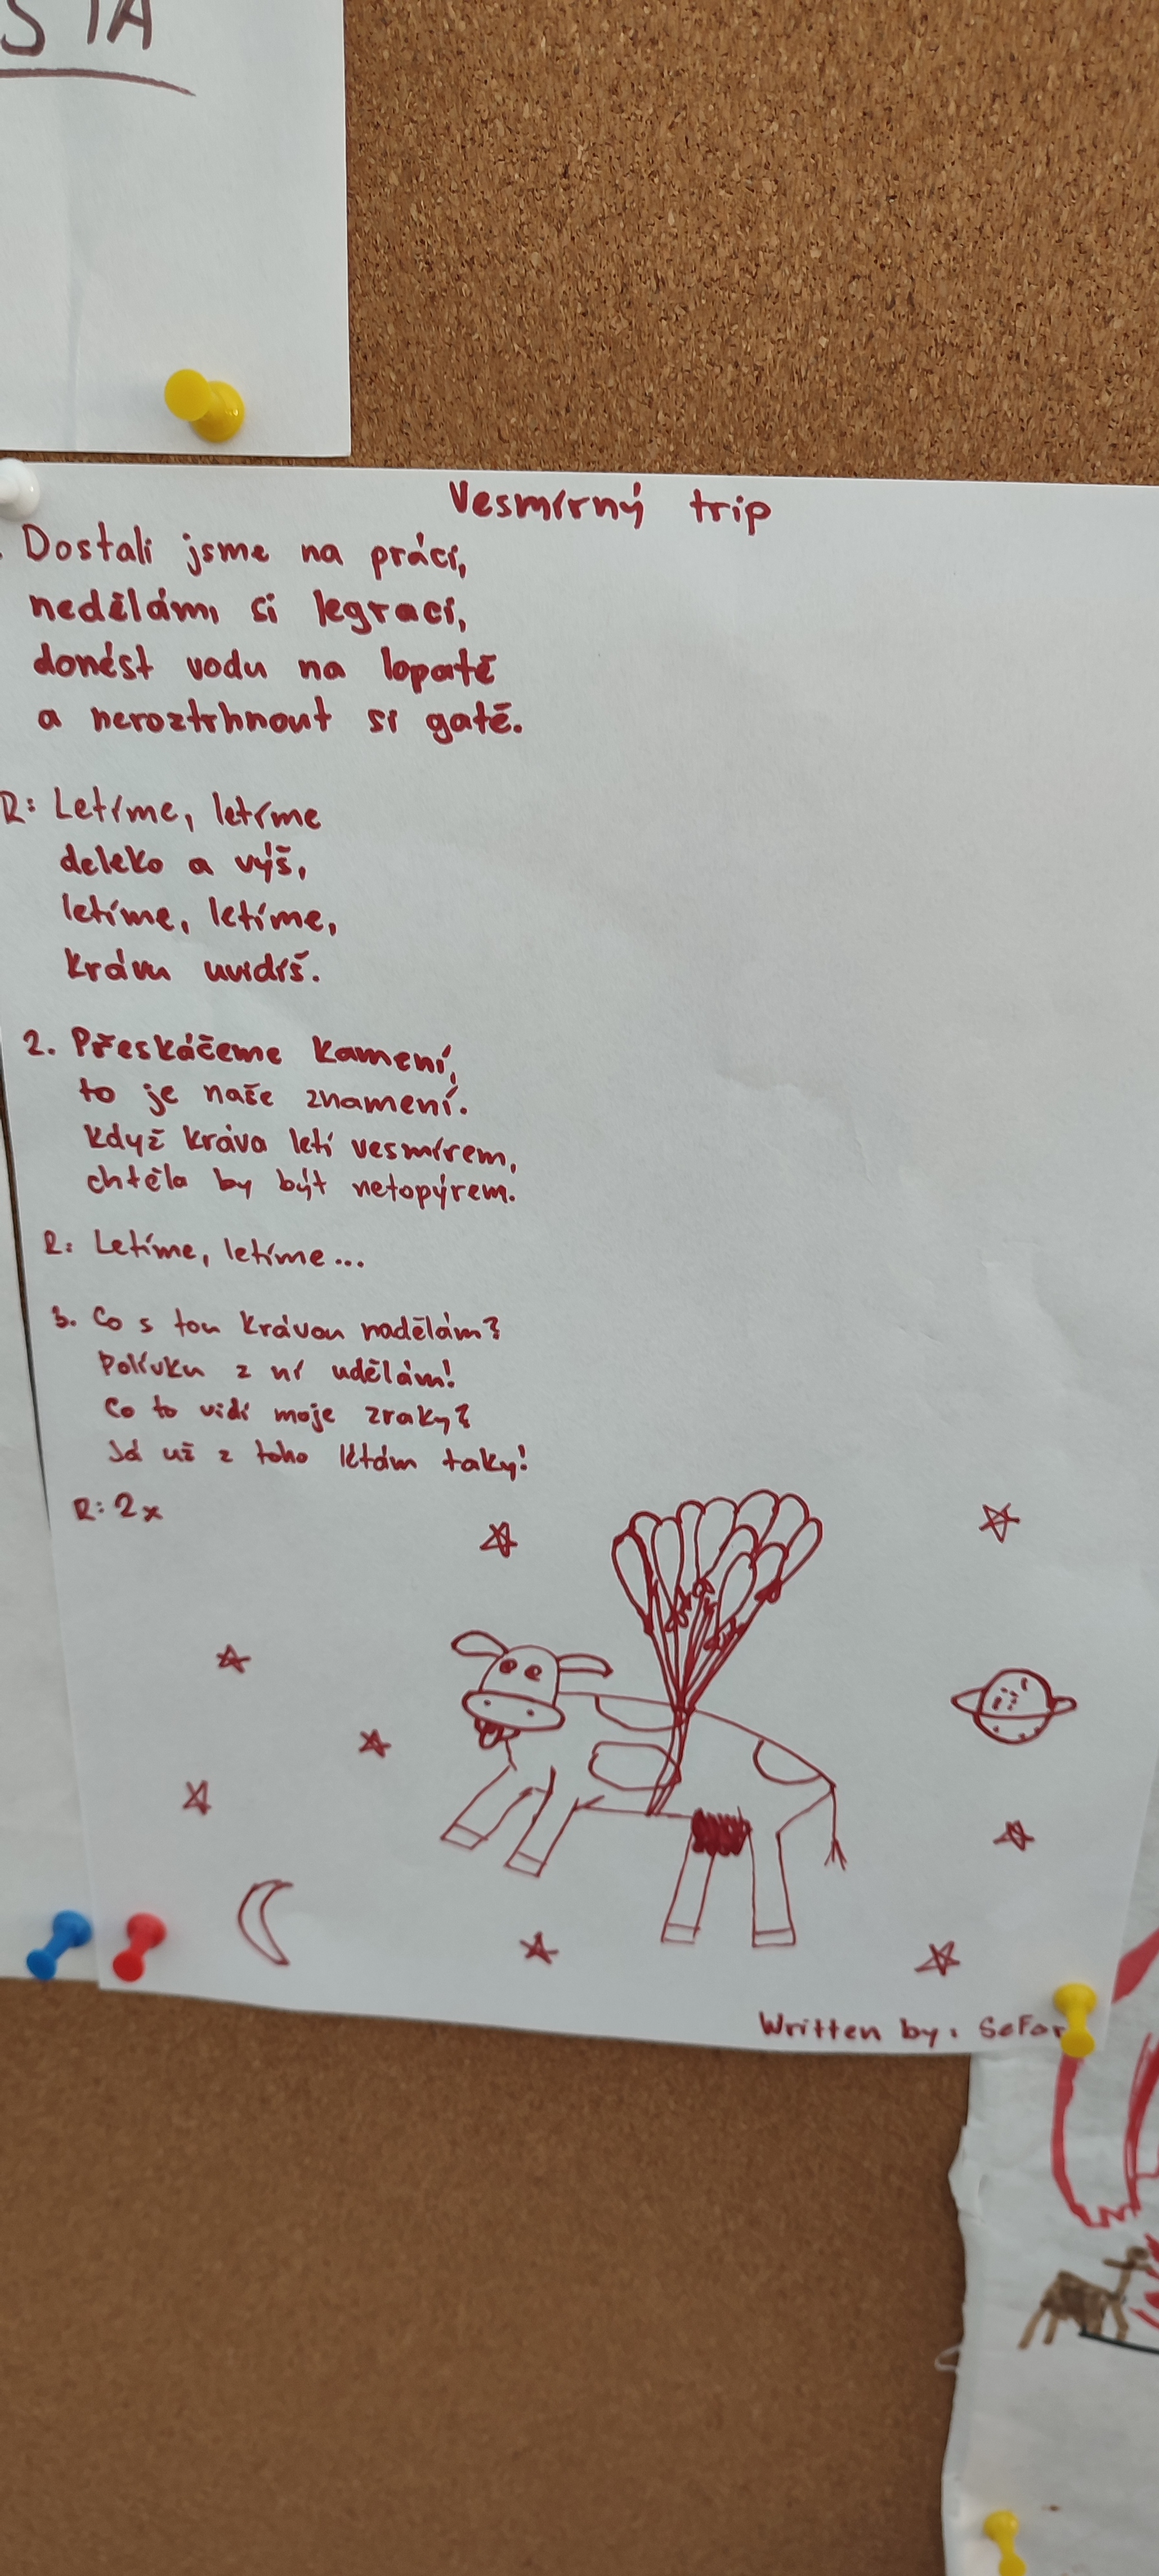 STA
Vesmírný trip
. Dostali jsme na prácí,
nedělám, si legrací,
donést vodu na lopatě
a neroztrhnout si gatě.
R: Letíme, letíme
deleko a výš,
letíme, letíme,
krávu uvidíš.
2. Přeskáčeme kamení,
to je naše znamení.
Když kráva letí vesmírem,
chtěla by být netopýrem.
R: Letíme, letíme...
3. Co s tou krávou nadělám?
Polívku z ní udělám!
Co to vidí moje zraky?
Já už z toho létám taky!
R: 2x
Written by: SeFar